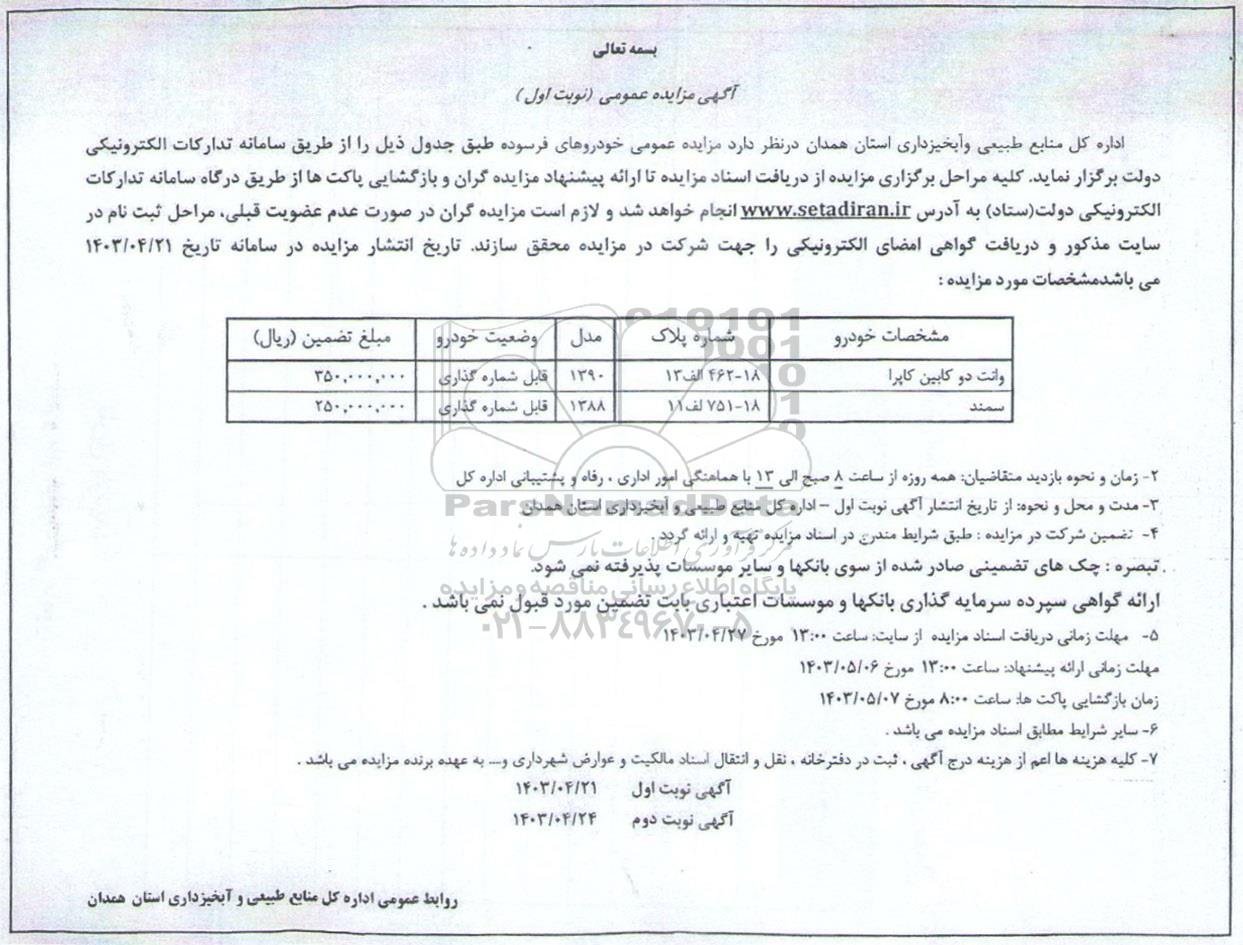 بسمه تعالی
آگهی مزایده عمومی (نوبت اول)
اداره کل منابع طبیعی وآبخیزداری استان همدان درنظر دارد مزایده عمومی خودروهای فرسوده طبق جدول ذیل را از طریق سامانه تدارکات الکترونیکی
دولت برگزار نماید. کلیه مراحل برگزاری مزایده از دریافت اسناد مزایده تا ارائه پیشنهاد مزایده گران و بازگشایی پاکت ها از طریق درگاه سامانه تدارکات
الکترونیکی دولت(ستاد) به آدرس www.setadiran.ir انجام خواهد شد و لازم است مزایده گران در صورت عدم عضویت قبلی، مراحل ثبت نام در
سایت مذکور و دریافت گواهی امضای الکترونیکی را جهت شرکت در مزایده محقق سازند. تاریخ انتشار مزایده در سامانه تاریخ ۱۴۰۳/۰۴/۲۱
می باشدمشخصات مورد مزایده :
مشخصات خودرو شماره پلاک مدل وضعیت خودرو مبلغ تضمین (ریال)
وانت دو کابین کاپرا ۱۸-۴۶۲ الف۱۳ ۱۳۹۰ قابل شماره گذاری ۳۵۰,۰۰۰,۰۰۰
سمند ۱۸-۷۵۱ لف۱۱ ۱۳۸۸ قابل شماره گذاری ۲۵۰,۰۰۰,۰۰۰
۲- زمان و نحوه بازدید متقاضیان: همه روزه از ساعت ۸ صبح الی ۱۳ با هماهنگی امور اداری ، رفاه و پشتیبانی اداره کل
ParsNamadData
۳- مدت و محل و نحوه: از تاریخ انتشار آگهی نوبت اول – اداره کل منابع طبیعی و آبخیزداری استان همدان
۴- تضمین شرکت در مزایده : طبق شرایط مندرج در اسناد مزایده تهیه و ارائه گردد .
مرکز فرآوری اطلاعات پارس نماد داده ها
تبصره : چک های تضمینی صادر شده از سوی بانکها و سایر موسسات پذیرفته نمی شود.
پایگاه اطلاع رسانی مناقصه و مزایده
ارائه گواهی سپرده سرمایه گذاری بانکها و موسسات اعتباری بابت تضمین مورد قبول نمی باشد .
۰۲۱-۸۸۳۴۹۶۷۰-۵
۵- مهلت زمانی دریافت اسناد مزایده از سایت: ساعت ۱۳:۰۰ مورخ ۱۴۰۳/۰۴/۲۷
مهلت زمانی ارائه پیشنهاد: ساعت ۱۳:۰۰ مورخ ۱۴۰۳/۰۵/۰۶
زمان بازگشایی پاکت ها: ساعت ۸:۰۰ مورخ ۱۴۰۳/۰۵/۰۷
۶- سایر شرایط مطابق اسناد مزایده می باشد .
۷- کلیه هزینه ها اعم از هزینه درج آگهی ، ثبت در دفترخانه ، نقل و انتقال اسناد مالکیت و عوارض شهرداری و... به عهده برنده مزایده می باشد .
آگهی نوبت اول ۱۴۰۳/۰۴/۲۱
آگهی نوبت دوم ۱۴۰۳/۰۴/۲۴
روابط عمومی اداره کل منابع طبیعی و آبخیزداری استان همدان